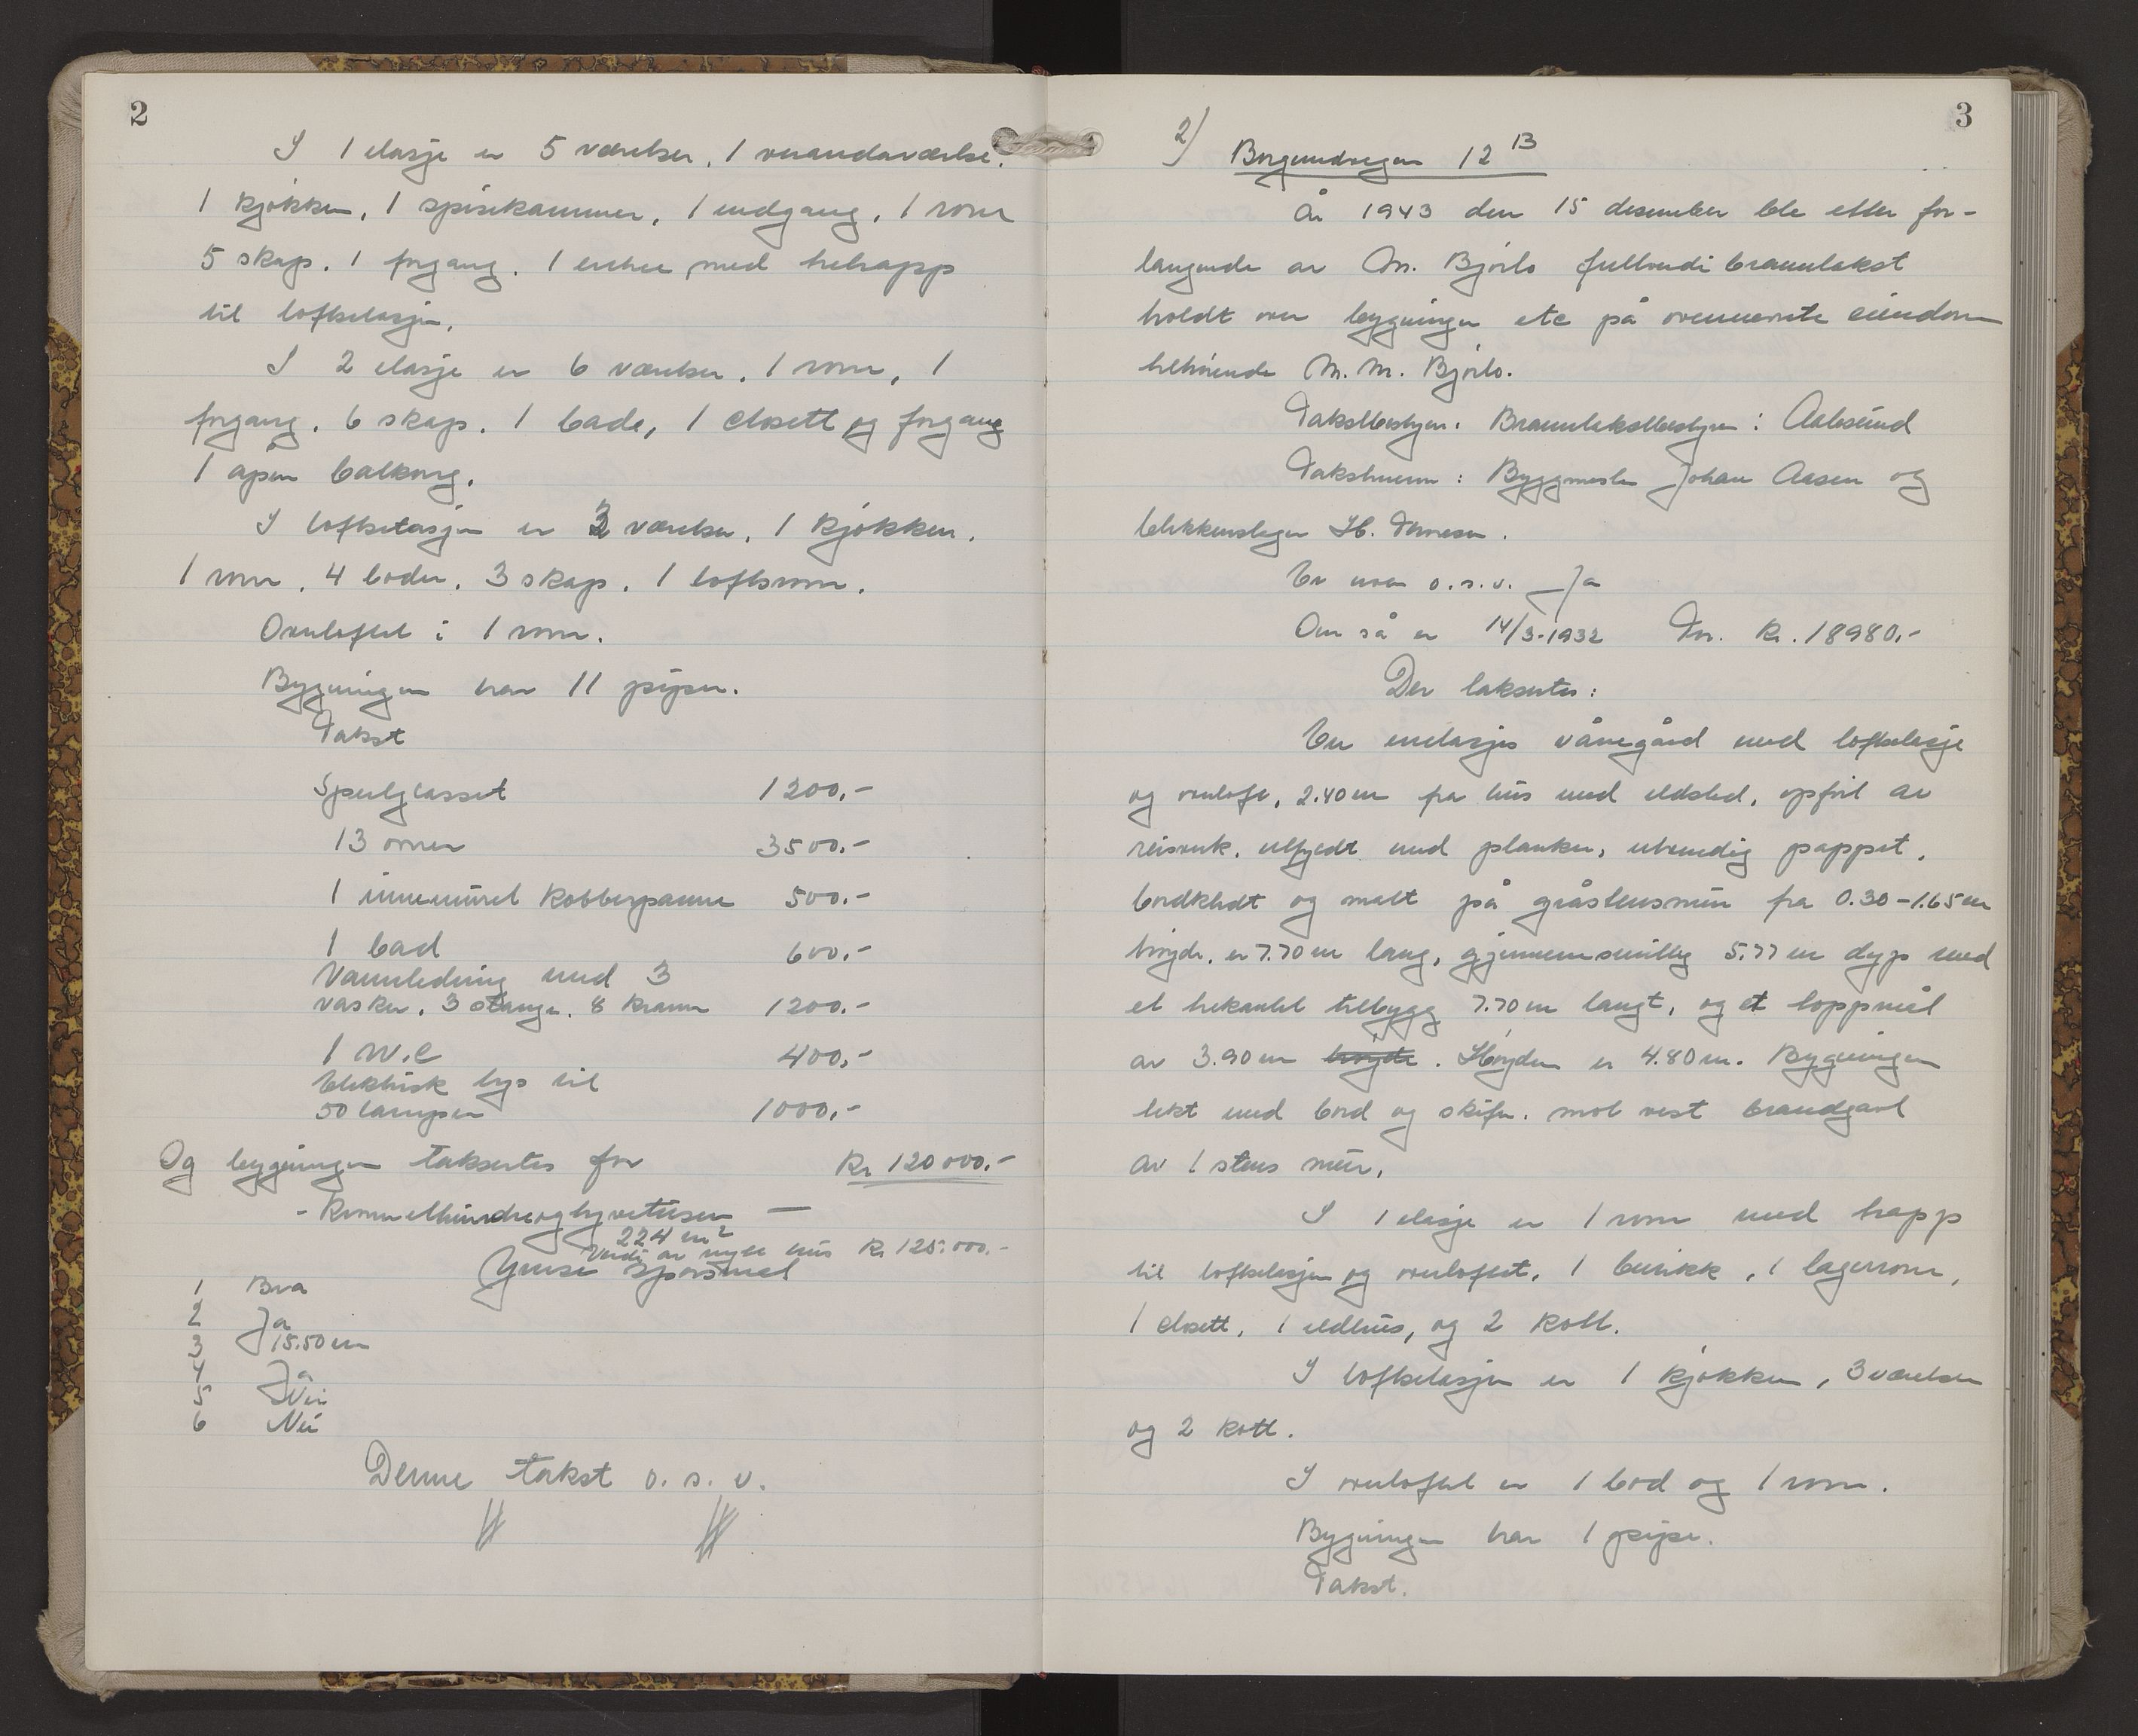 2
I 1 etasje er 5 værelser, 1 verandaværelse.
1 kjøkken, 1 spisekammer, 1 indgang, 1 rom
5 skap. 1 forgang. 1 entree med hetrapp
til loftsetasjen.
I 2 etasje er 6 værelser. 1 rom, 1
forgang. 6 skap. 1 bade, 1 closett og forgang
1 åpen balkong.
I loftsetasjen er 3 værelser, 1 kjøkken.
1 rom. 4 boder. 3 skap. 1 loftsrom.
Overloftet i 1 rom.
Bygningen har 11 piper.
Takst
Speilglasset 1200.-
13 ovner 3500.-
1 innemuret kobberpanne 500.-
1 bad 600.-
Vannledning med 3
vasker. 3 stange. 8 kraner 1200.-
1 W.C 400.-
Elektrisk lys til
50 lamper 1000.-
Og bygningen taksertes for Kr 120000.-
- Kroner etthundreogtyvetusen —
224 m²
Verdi av nytt hus Kr 125.000.-
Gruse Spørsmål
1 Bra
2 Ja
3 15.50 m
4 Ja
5 Nei
6 Nei
Denne takst o. s. v.
3
2) Borgundvegen 12 B
År 1943 den 15 desember ble etter for-
langende av M. Bjørlo fullverdi branntakst
holdt over bygninger etc på ovennevnte eiendom
tilhørende M. M. Bjørlo.
Takstbestyrer. Branntakstbestyrer: Aalesund
Takstmenn: Byggmester Johan Aasen og
blikkenslager H. Thoresen.
Er noen o.s.v. Ja
Om så er 14/3-1932 For. Kr. 18980.-
Der taksertes:
En enetasjes våningsgård med loftsetasje
og overloft. 2.40 m fra hus med ildsted. opført av
reisverk. utfyldt med planker, utvendig pappet.
bordkledt og malt på gråstensmur fra 0.30-1.65 m
høyde. er 7.70 m lang, gjennemsnittlig 5.77 m dyp med
et trekantet tilbygg 7.70 m langt, og et toppmål
av 3.90 m høyde. Høyden er 4.80 m. Bygningen
tekt med bord og skifer. mot vest brandgavl
av 1 stens mur.
I 1 etasje er 1 rom med trapp
til loftsetasjen og overloftet. 1 butikk, 1 lagerrom,
1 closett, 1 ildhus, og 2 kott.
I loftsetasjen er 1 kjøkken, 3 værelser
og 2 kott.
I overloftet er 1 bod og 1 rom.
Bygningen har 1 pipe.
Takst.